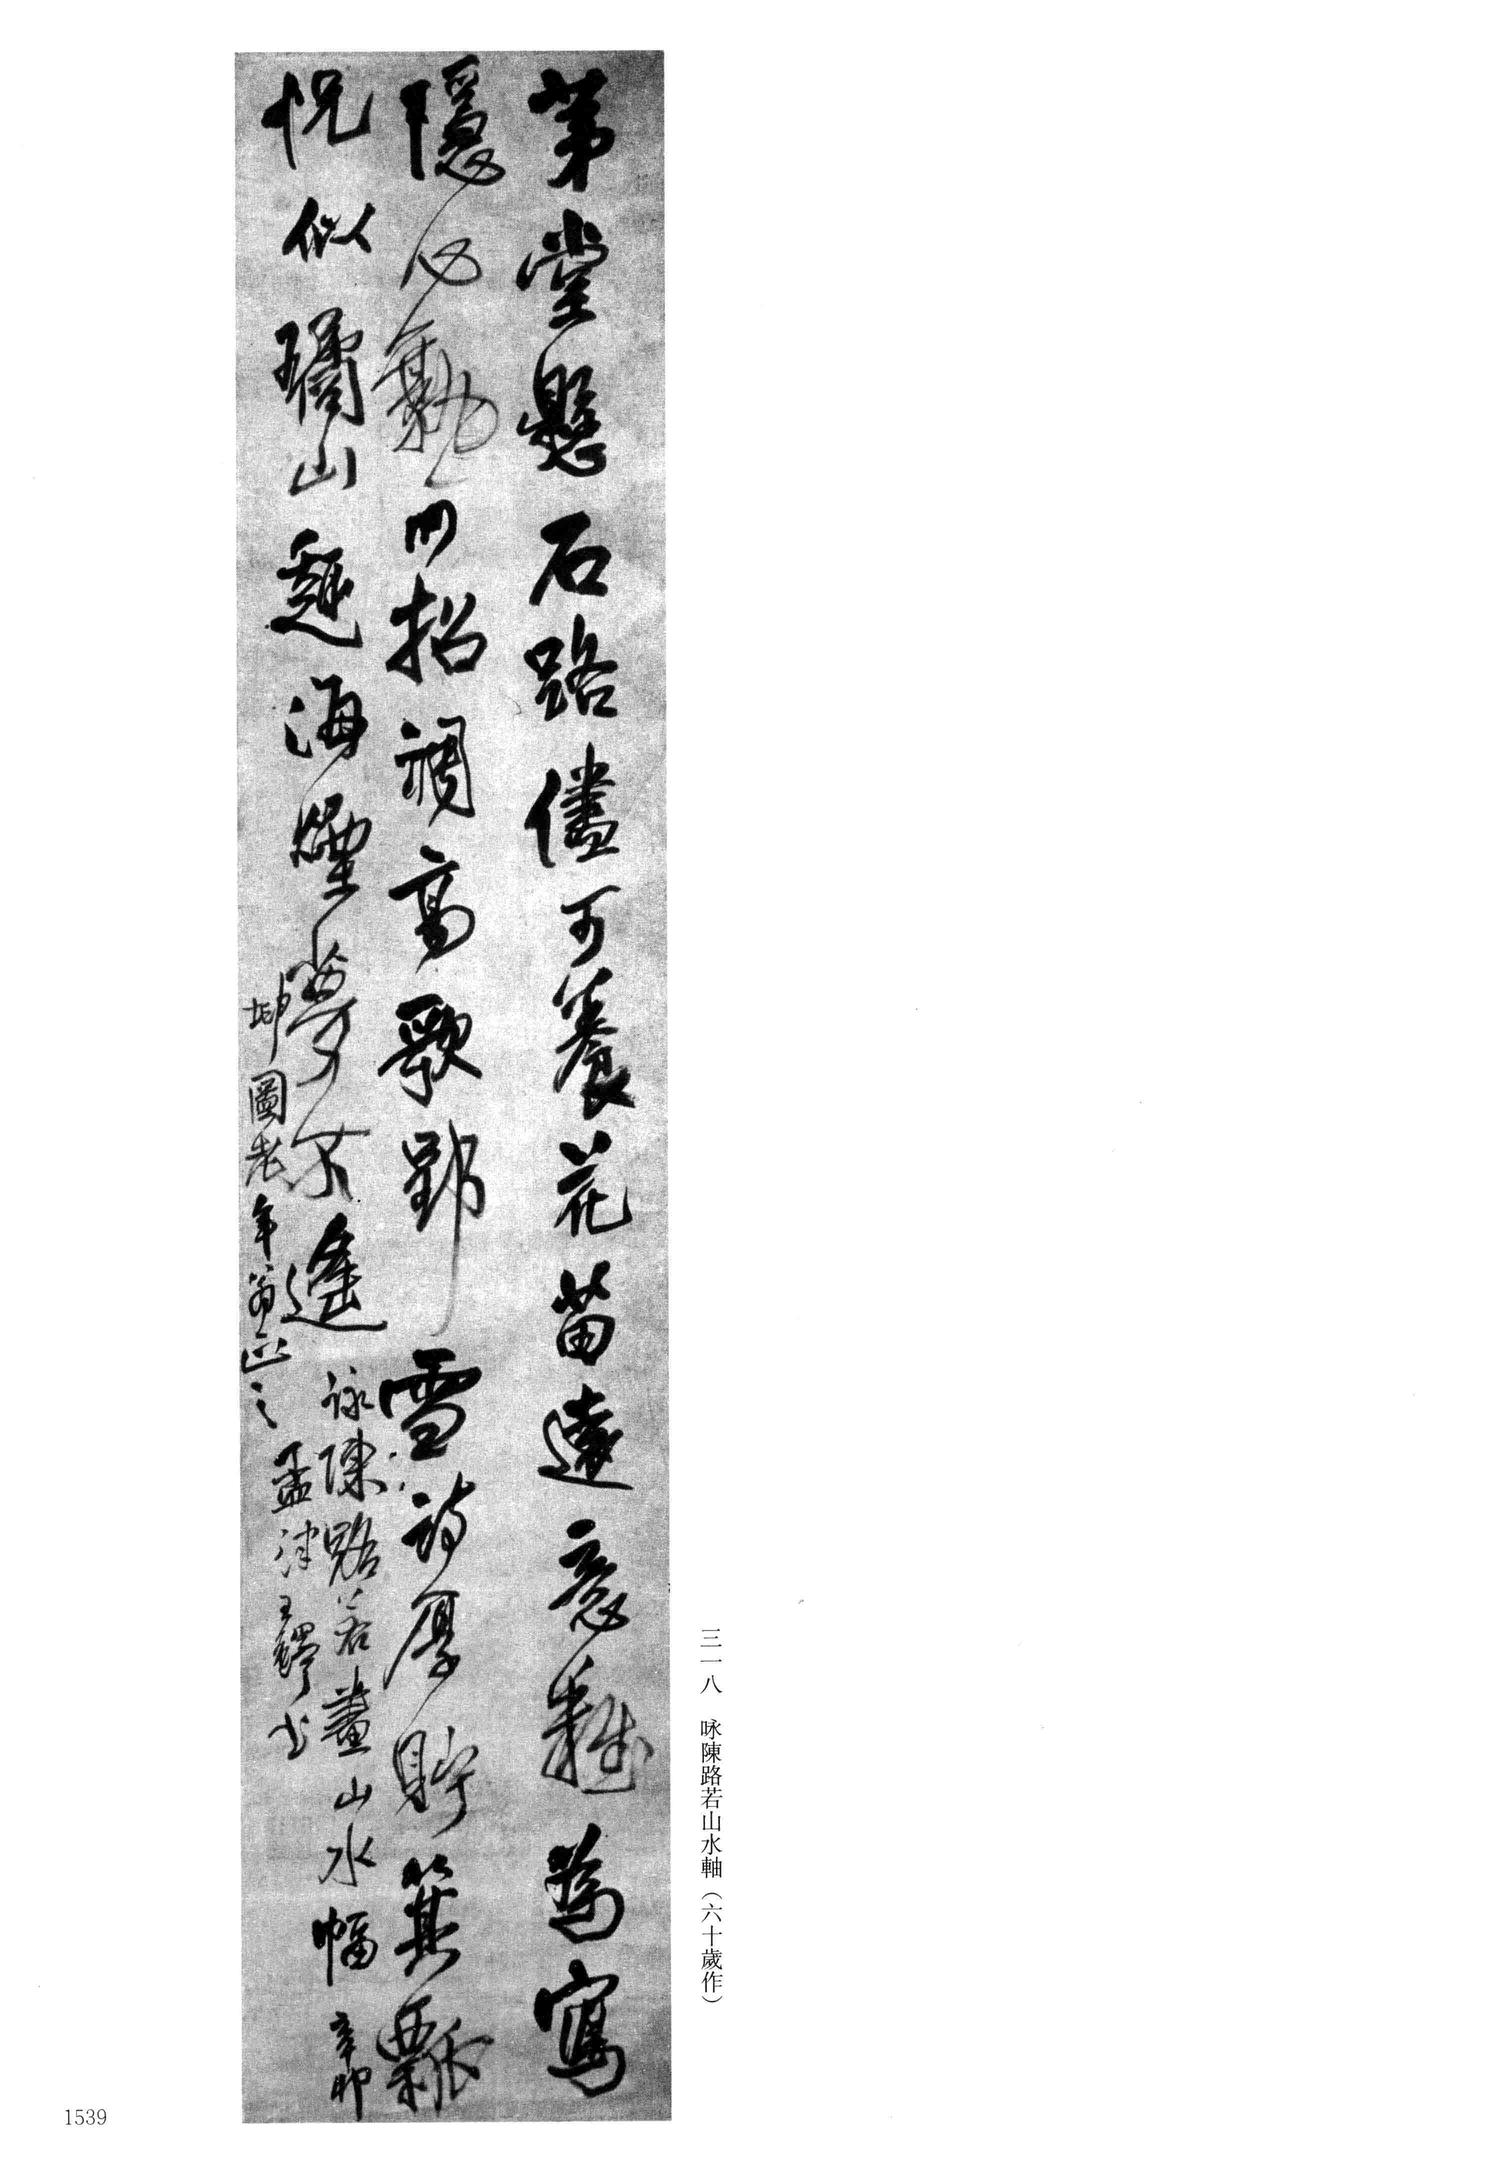 茅堂懸石路儘可養花苗遠意難為寫
隱心勤招調高歌郢雪詩厚貯箕瓢
怳似璚山海煙夢不遙
詠陳路若畫山水幅辛卯
坤圖老年翁正之
孟津王鐸書
三一八 咏陳路若山水軸（六十歲作）
1539